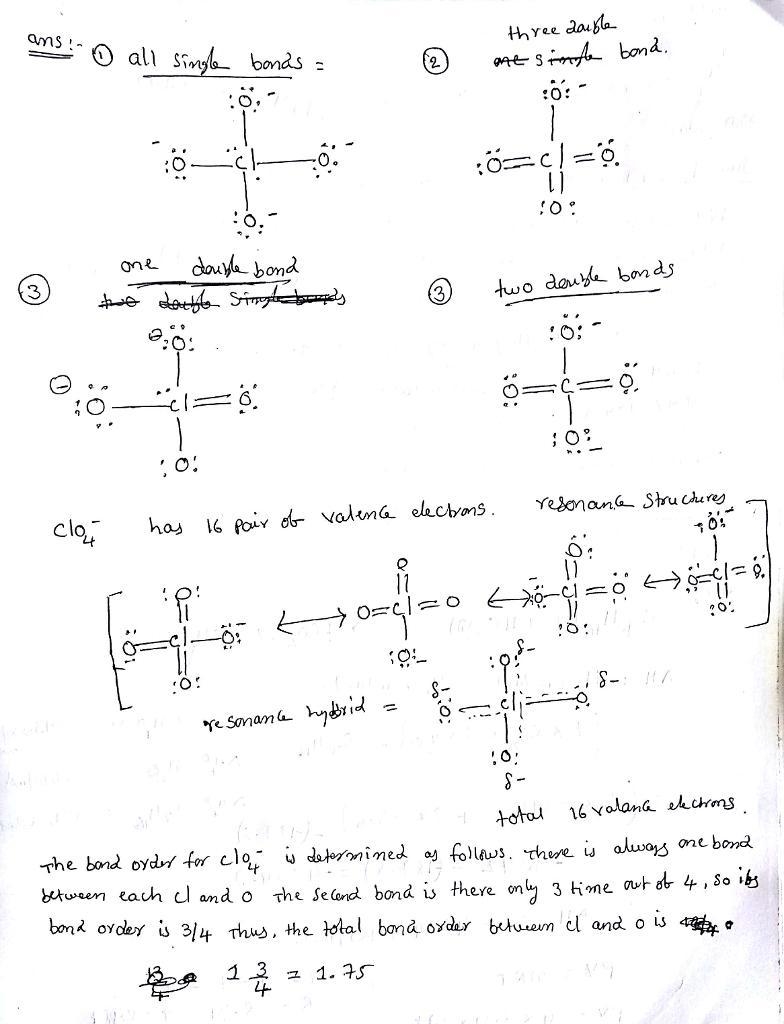 ans:- ① all single bonds =
② three double
one single bond.
:Ö:-
-
:Ö—Cl—Ö:-
:O:-
:Ö:-
:Ö=Cl=Ö:
:O:
③ one double bond
two double single bonds
⊖:Ö:
⊖:Ö—Cl=Ö:
:O:
③ two double bonds
:Ö:-
Ö=C=Ö:
:O:-
ClO4- has 16 pair of valence electrons. resonance structures
[
:O:
Ö=Cl—Ö:-
:O:
⟷
O
O=Cl=O
:O:-
⟷
Ö:
-:Ö—Cl=Ö
:O:
⟷
:Ö:-
Ö=Cl=O:
:O:
]
resonance hybrid =
:O: δ-
δ- Ö Cl O δ-
:O:
δ-
total 16 valance electrons.
The bond order for clo4- is determined as follows. There is always one bond
between each cl and o The second bond is there only 3 time out of 4, so its
bond order is 3/4 Thus, the total bond order between cl and o is
1 3/4 = 1.75